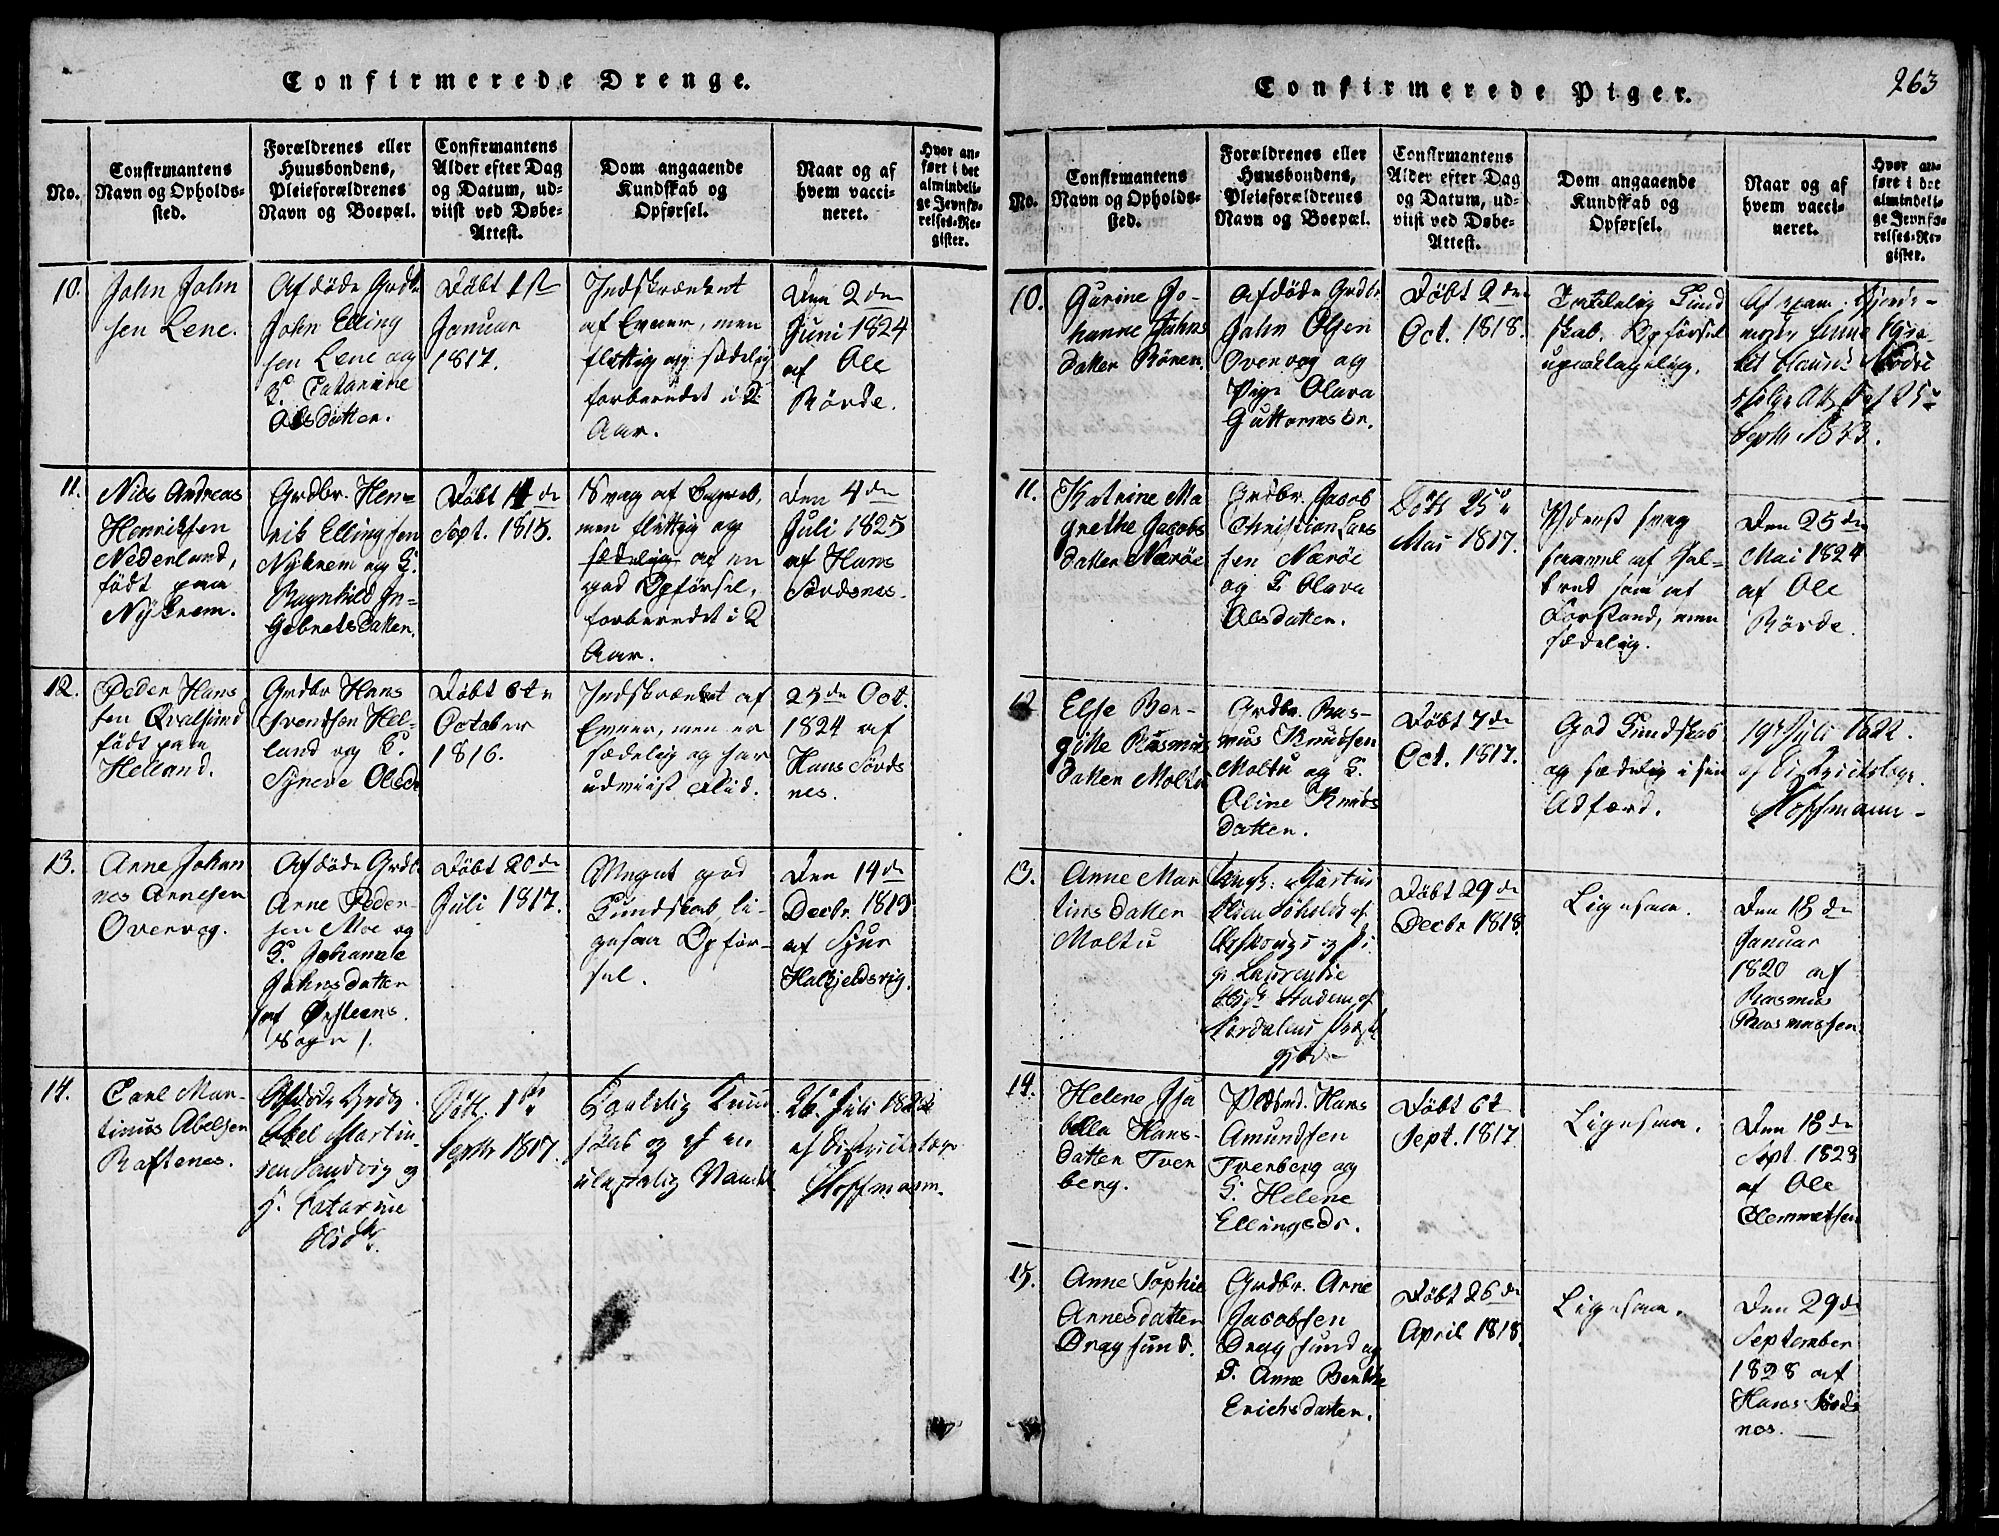 Confirmerede Drenge.
No.
Confirmantens
Navn og Opholds-
sted.
Forældrenes eller
Huusbondens,
Pleieforældrenes
Navn og Boepæl.
Confirmantens
Alder efter Dag
og Datum, ud-
viist ved Døbe-
Attest.
Dom angaaende
Kundskab og
Opførsel.
Naar og af
hvem vacci-
neret.
Hvor an-
ført i det
almindeli-
ge Jevnfø-
relses-Re-
gister.
10.
John John
sen Lene.
Afdöde Grdbr
John Elling
sen Lene og
K. Catarine
Olsdatter.
Döbt 1st
Januar
1817.
Indskrænket
af Evner, men
flittig og sædelig
forberedet i 2
Aar.
Den 2den
Juni 1824
af Ole
Rövde.
11.
Niels Andreas
Henriksen
Nederland,
födt paa
Nykrem.
Grdbr. Hen-
rik Ellingsen
Nykrem og K.
Ragnhild In-
gebretsdatter.
Döbt 14de
Sept. 1815.
Svag af Begreb,
men flittig og
sædelig af en
god Opförsel,
forberedet i 2
Aar.
Den 4de
Juli 1825
af Hans
Sövdsnes.
12.
Peder Hans
sen Qvalsund
födt paa
Helland.
Grdbr Hans
Svendsen Hel-
land og K.
Syneve Olsdr
Döbt 6te
October
1816.
Indskrænket af
Evner, men er
sædelig og har
udviist Flid.
25de Oct.
1824 af
Hans Sövds
nes.
13.
Arne Johan
nes Arnesen
Overvog.
Afdöde Grdb.
Arne Peder-
sen Moe og
K. Johanne
Johnsdatter
af Örsteens
Sogn
Döbt 20de
Juli 1817.
Meget god
Kundskab, li-
gesaa Opför-
sel.
Den 14de
Decbr. 1819
af Sjur
Halkjeldsvig.
14.
Carl Mar-
tinus Abelsen
Raftenes.
Afdöde
Abel Martin-
sen Sandvig og
K. Catarine
Olsdtr.
Döbt 1ste
Septbr 1817.
Kund
skab og af en
ulastelig Vandel.
26. Juli 1822
af Districtslæge
Hoffmann.
Confirmerede Piger.
263
No.
Confirmantens
Navn og Opholds-
sted.
Forældrenes eller
Huusbondens,
Pleieforældrenes
Navn og Boepæl.
Confirmantens
Alder efter Dag
og Datum, ud-
viist ved Døbe-
Attest.
Dom angaaende
Kundskab og
Opførsel.
Naar og af
hvem vacci-
neret.
Hvor an-
føre i det
almindeli-
ge Jevnfø-
relses-Re-
gister.
10.
Gurine Jo-
hanne Johns
datter Rönen.
Afdöde Grdbr
John Olsen
Overvog og
Pige Olava
Guttormsdr.
Döbt 2den
Oct. 1818.
Kund
skab. Opförsel
upaaklagelig.
Af
Septbr 1833.
11.
Katrine Ma
grethe Jacobs
datter Næröe
Grdbr. Jacob
Christian Lars
sen Næröe
og K. Olava
Olsdatter.
Döbt 25de
Mai 1817.
Yderst svag
saavel af
som af
Forstand, men
sædelig.
Den 25de
Mai 1824
af Ole
Rövde.
12
Else Ber-
gitte Rasmus
datter Moltu
Grdbr. Ras-
mus Knudsen
Moltu og K.
Oline Knuds
datter.
Döbt 7de
Oct. 1817.
God Kundskab
og sædelig i sin
Adfærd.
19 Juli 1822.
af Districtslæge
Hoffmann
13.
Anne Mar
tinsdatter
Moltu
Ungk: Martin
Olsen
og Pi-
ge Laurentie
Döbt 29de
Decbr 1818.
Ligesaa.
Den 18de
Januar
1820 af
Rasmus
Rasmussen
14.
Helene Isa
bella Hans-
datter Tven
berg.
Pladsmd. Hans
Amundsen
Tvenberg og
K. Helene
Ellingsdr.
Döbt 6t
Sept. 1817
Ligesaa.
Den 18de
Sept. 1823
af Ole
Clemmetsen
15.
Anne Sophie
Arnesdatter
Dragsund.
Grdbr. Arne
Jacobsen
Dragsund og
K. Anne Berthe
Erichsdatter.
Döbt 26de
April 1818
Ligesaa.
Den 29de
September
1828 af
Hans Sövds
nes.